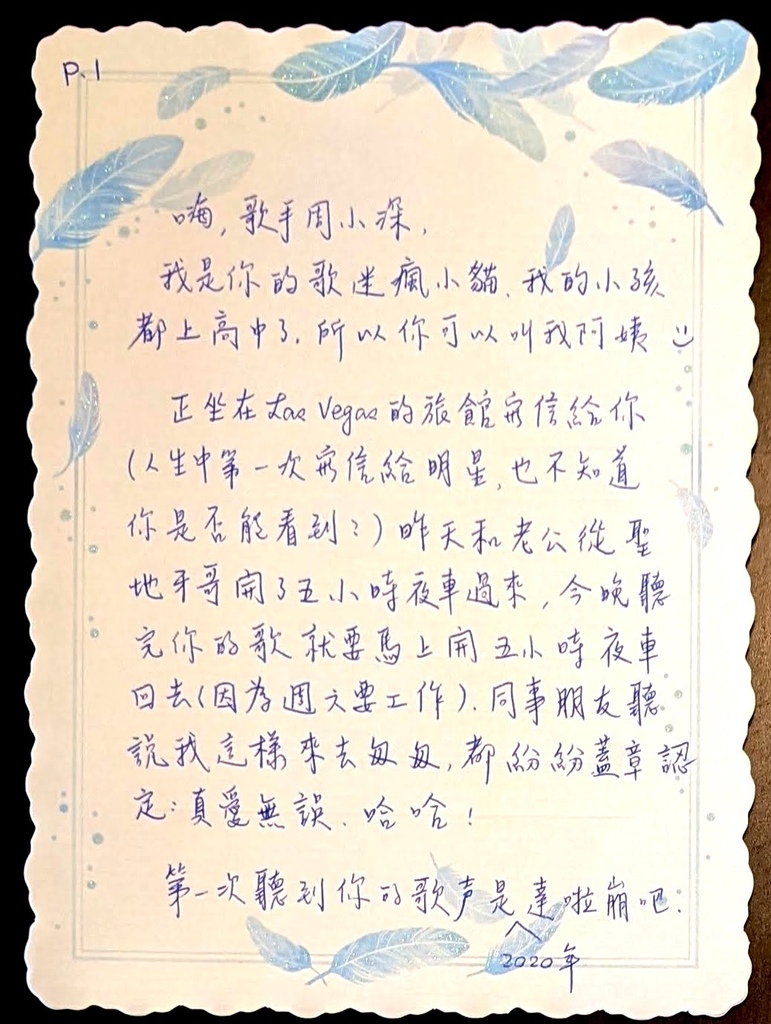 P.1
嗨,歌手周小深,
我是你的歌迷瘋小貓.我的小孩
都上高中了.所以你可以叫我阿姨
正坐在Las Vegas的旅館寫信給你
(人生中第一次寫信給明星,也不知道
你是否能看到?)昨天和老公從聖
地牙哥開了五小時夜車過來,今晚聽
完你的歌就要馬上開五小時夜車
回去(因為週六要工作).同事朋友聽
說我這樣來去匆匆,都紛紛蓋章認
定:真愛無誤.哈哈!
第一次聽到你的歌声是達啦崩吧.
2020年